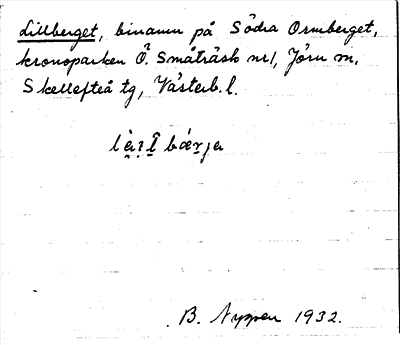 Lillberget, binamn på Södra Ormberget,
kronoparken Ö. Småträsk nr 1, Jörn m,
Skellefteå tg, Västerb. l.
B. Nyppen 1932.